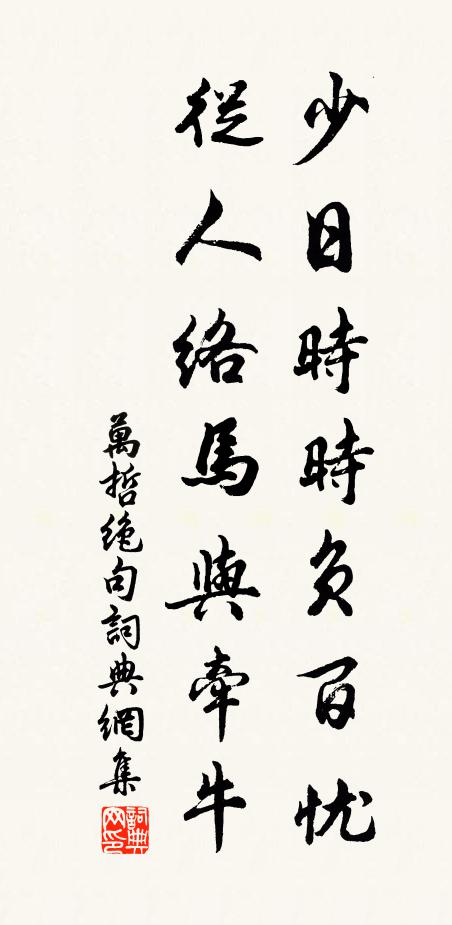 少日時時負百忧
從人絡馬與牽牛
萬哲绝句詞典網集
詞典网印